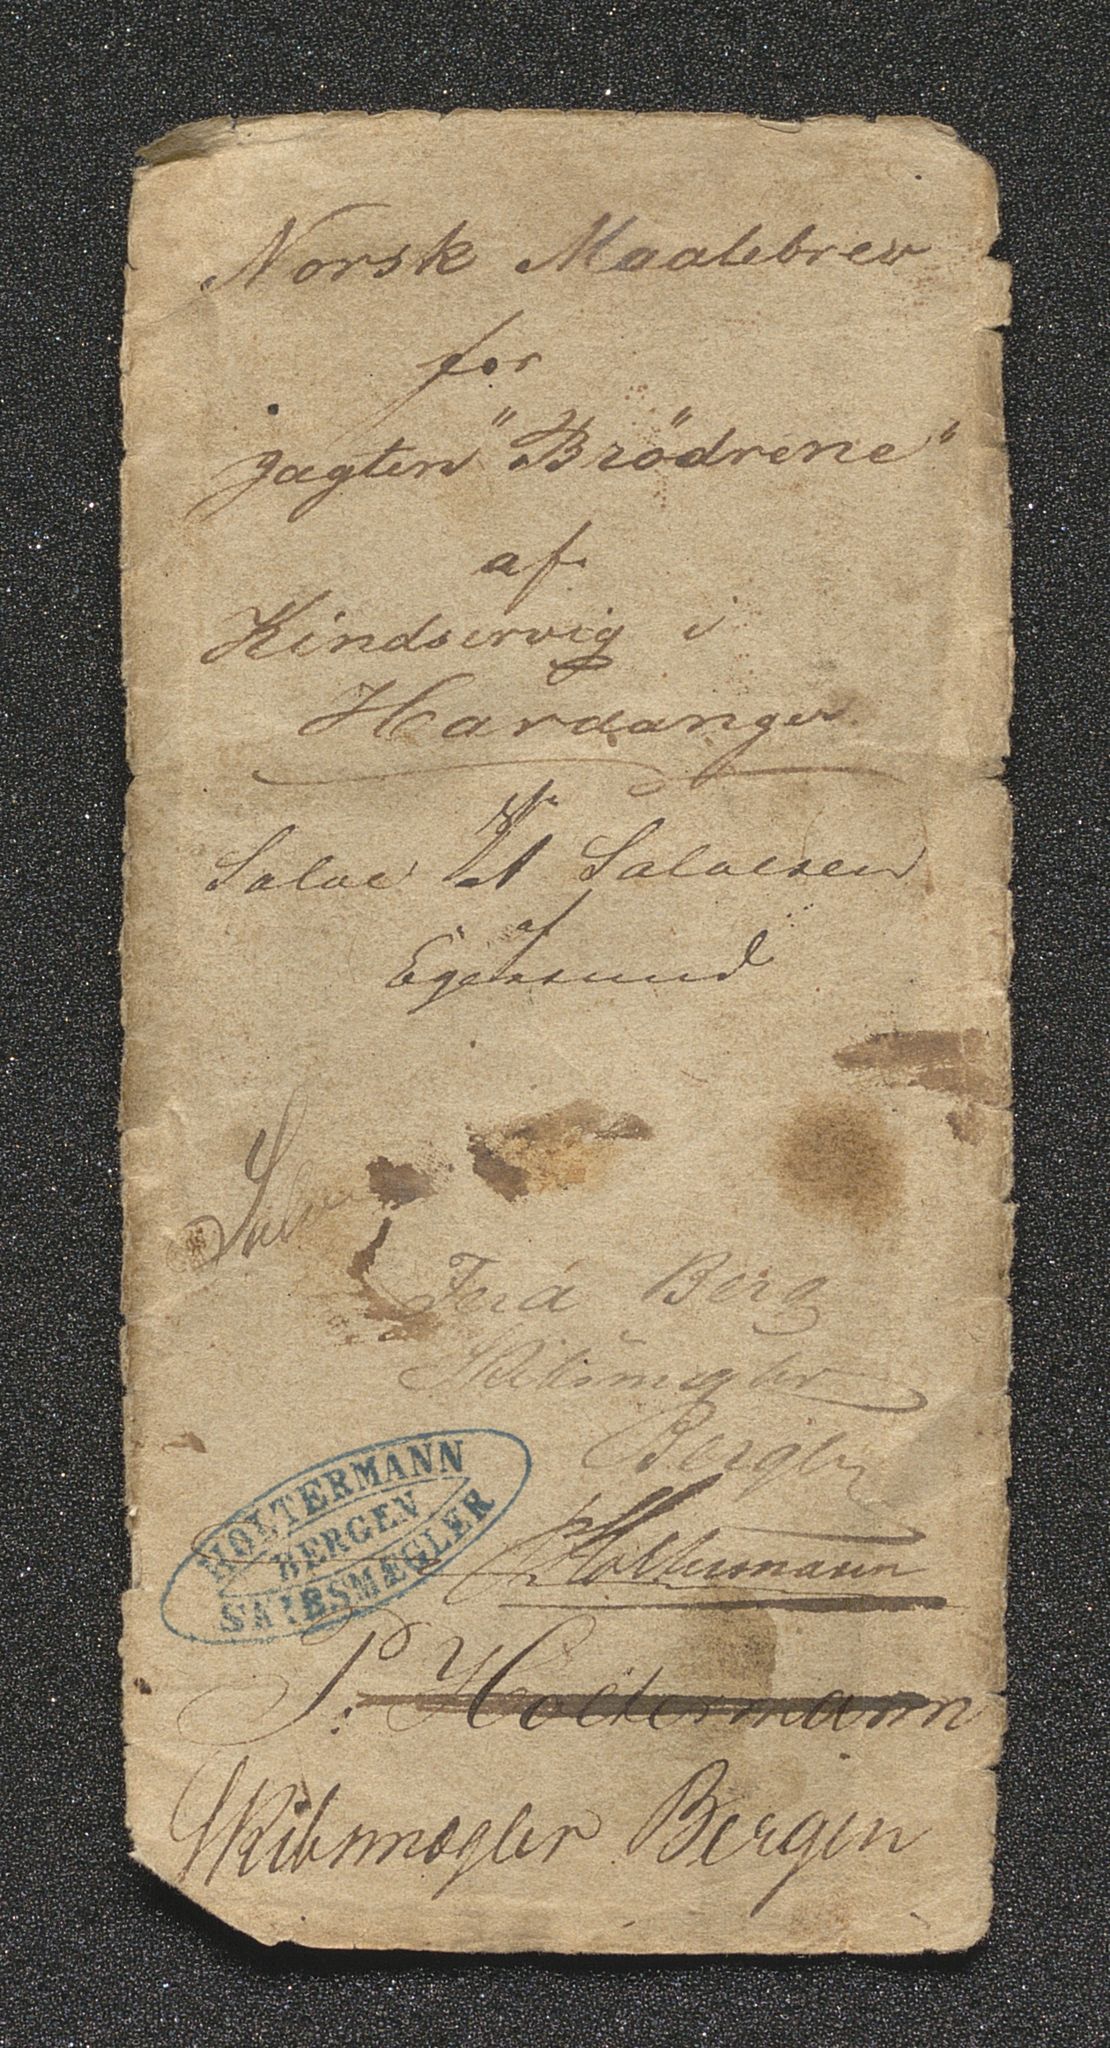 Norsk Maalebrev
for
Jagten "Brödrene"
af
Kindservig i
Hardanger
Salve Salvesen
af
Egersund
Salve
Ferd Berg
Skibsmegler
Bergen
HOLTERMANN
BERGEN
SKIBSMEGLER
P Holtermann
P. Holtermann
Skibsmægler Bergen